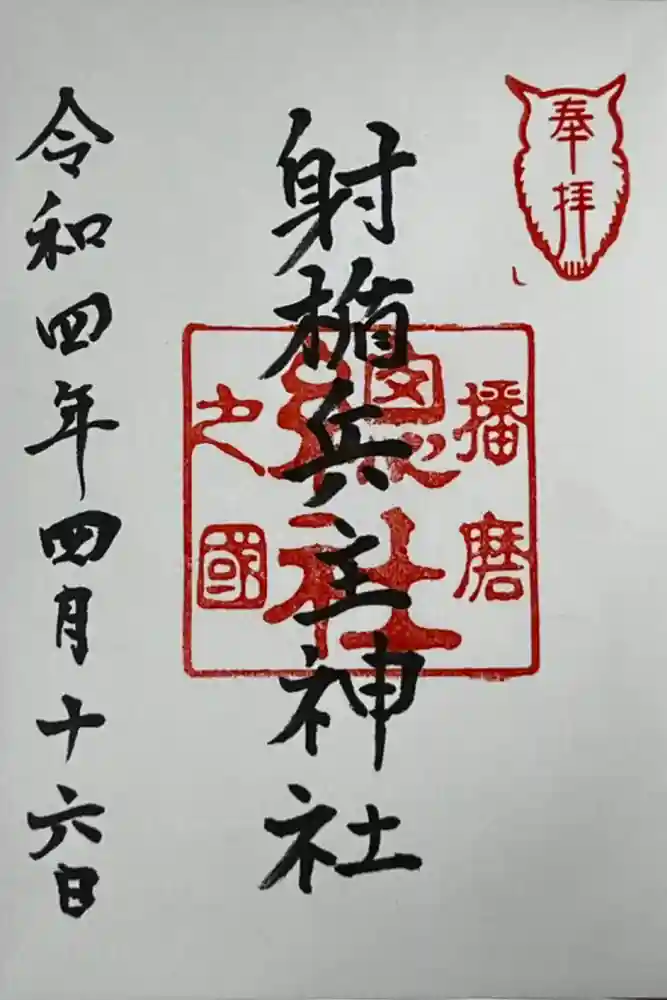 奉拝
播磨
總社
之國
射楯兵主神社
令和四年四月十六日